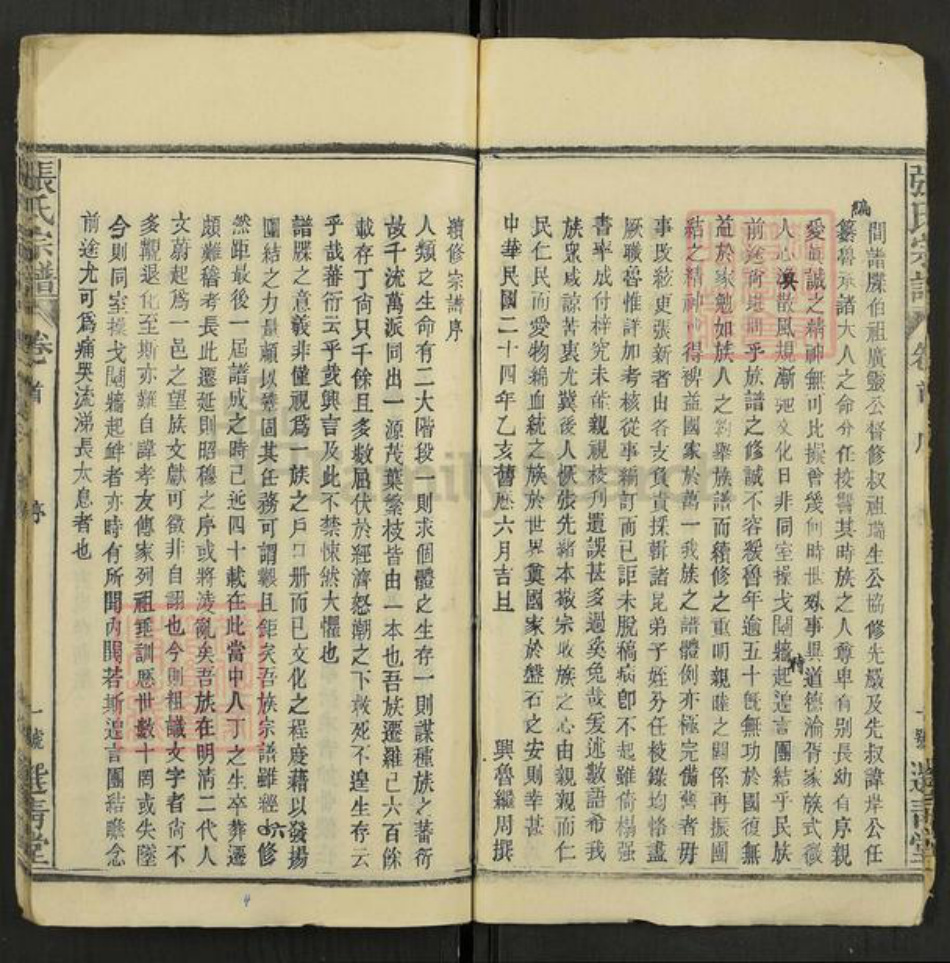 間譜牒伯祖廣靈公督修叔祖瑞生公協修先嚴及先叔諱岸公任
編
纂魯承諸大人之命分任校讐其時族之人尊卑有别長幼有序親
愛眞誠之精神無可比擬曾幾何時世殊事異道德淪胥家族式微
人心渙散風規漸弛文化日非同室操戈鬩牆起遑言團結乎民族
時
前途尙堪問乎族譜之修誠不容緩魯年逾五十旣無功於國復無
益於家勉如族人之約舉族譜而續修之重明親睦之關係再振團
結之精神 得裨益國家於萬一我族之譜體例亦極完備舊者毋
事改絃更張新者由各支負責採輯諸昆弟子姪分任校錄均恪盡
厥職魯惟詳加考核從事編訂而已詎未脫稿病卽不起雖倚榻强
書率成付梓究未能親視校刋遺誤甚多過奚免哉爰述數語希我
族衆咸諒苦衷尤冀後人恢張先緖本敬宗收族之心由親親而仁
民仁民而愛物綿血統之族於世界奠國家於盤石之安則幸甚
中華民國二十四年乙亥舊歷六月吉旦
興魯繼周撰
續修宗譜序
人類之生命有二大階段一則求個體之生存一則謀種族之蕃衍
故千流萬派同出一源茂葉繁枝皆由一本也吾族遷羅已六百餘
載存丁尙只千餘且多數屈伏於經濟怒潮之下救死不遑生存云
乎哉蕃衍云乎哉興言及此不禁悚然大懼也
譜牒之意義非僅視爲一族之戶口册而已文化之程度藉以發揚
團結之力量賴以鞏固其任務可謂艱且鉅矣吾族宗譜雖經六修
然距最後一屆譜成之時己近四十載在此當中人丁之生卒葬遷
頗難稽考長此遷延則昭穆之序或將淩亂矣吾族在明淸二代人
文蔚起爲一邑之望族文獻可徵非自詡也今則粗識文字者尙不
多觀退化至斯亦難自諱孝友傳家列祖垂訓歷世數十罔或失墜
今則同室操戈鬩牆起衅者亦時有所聞內鬨若斯遑言團結瞻念
前途尤可爲痛哭流涕長太息者也
張氏宗譜
卷首
序
一號
選靑堂